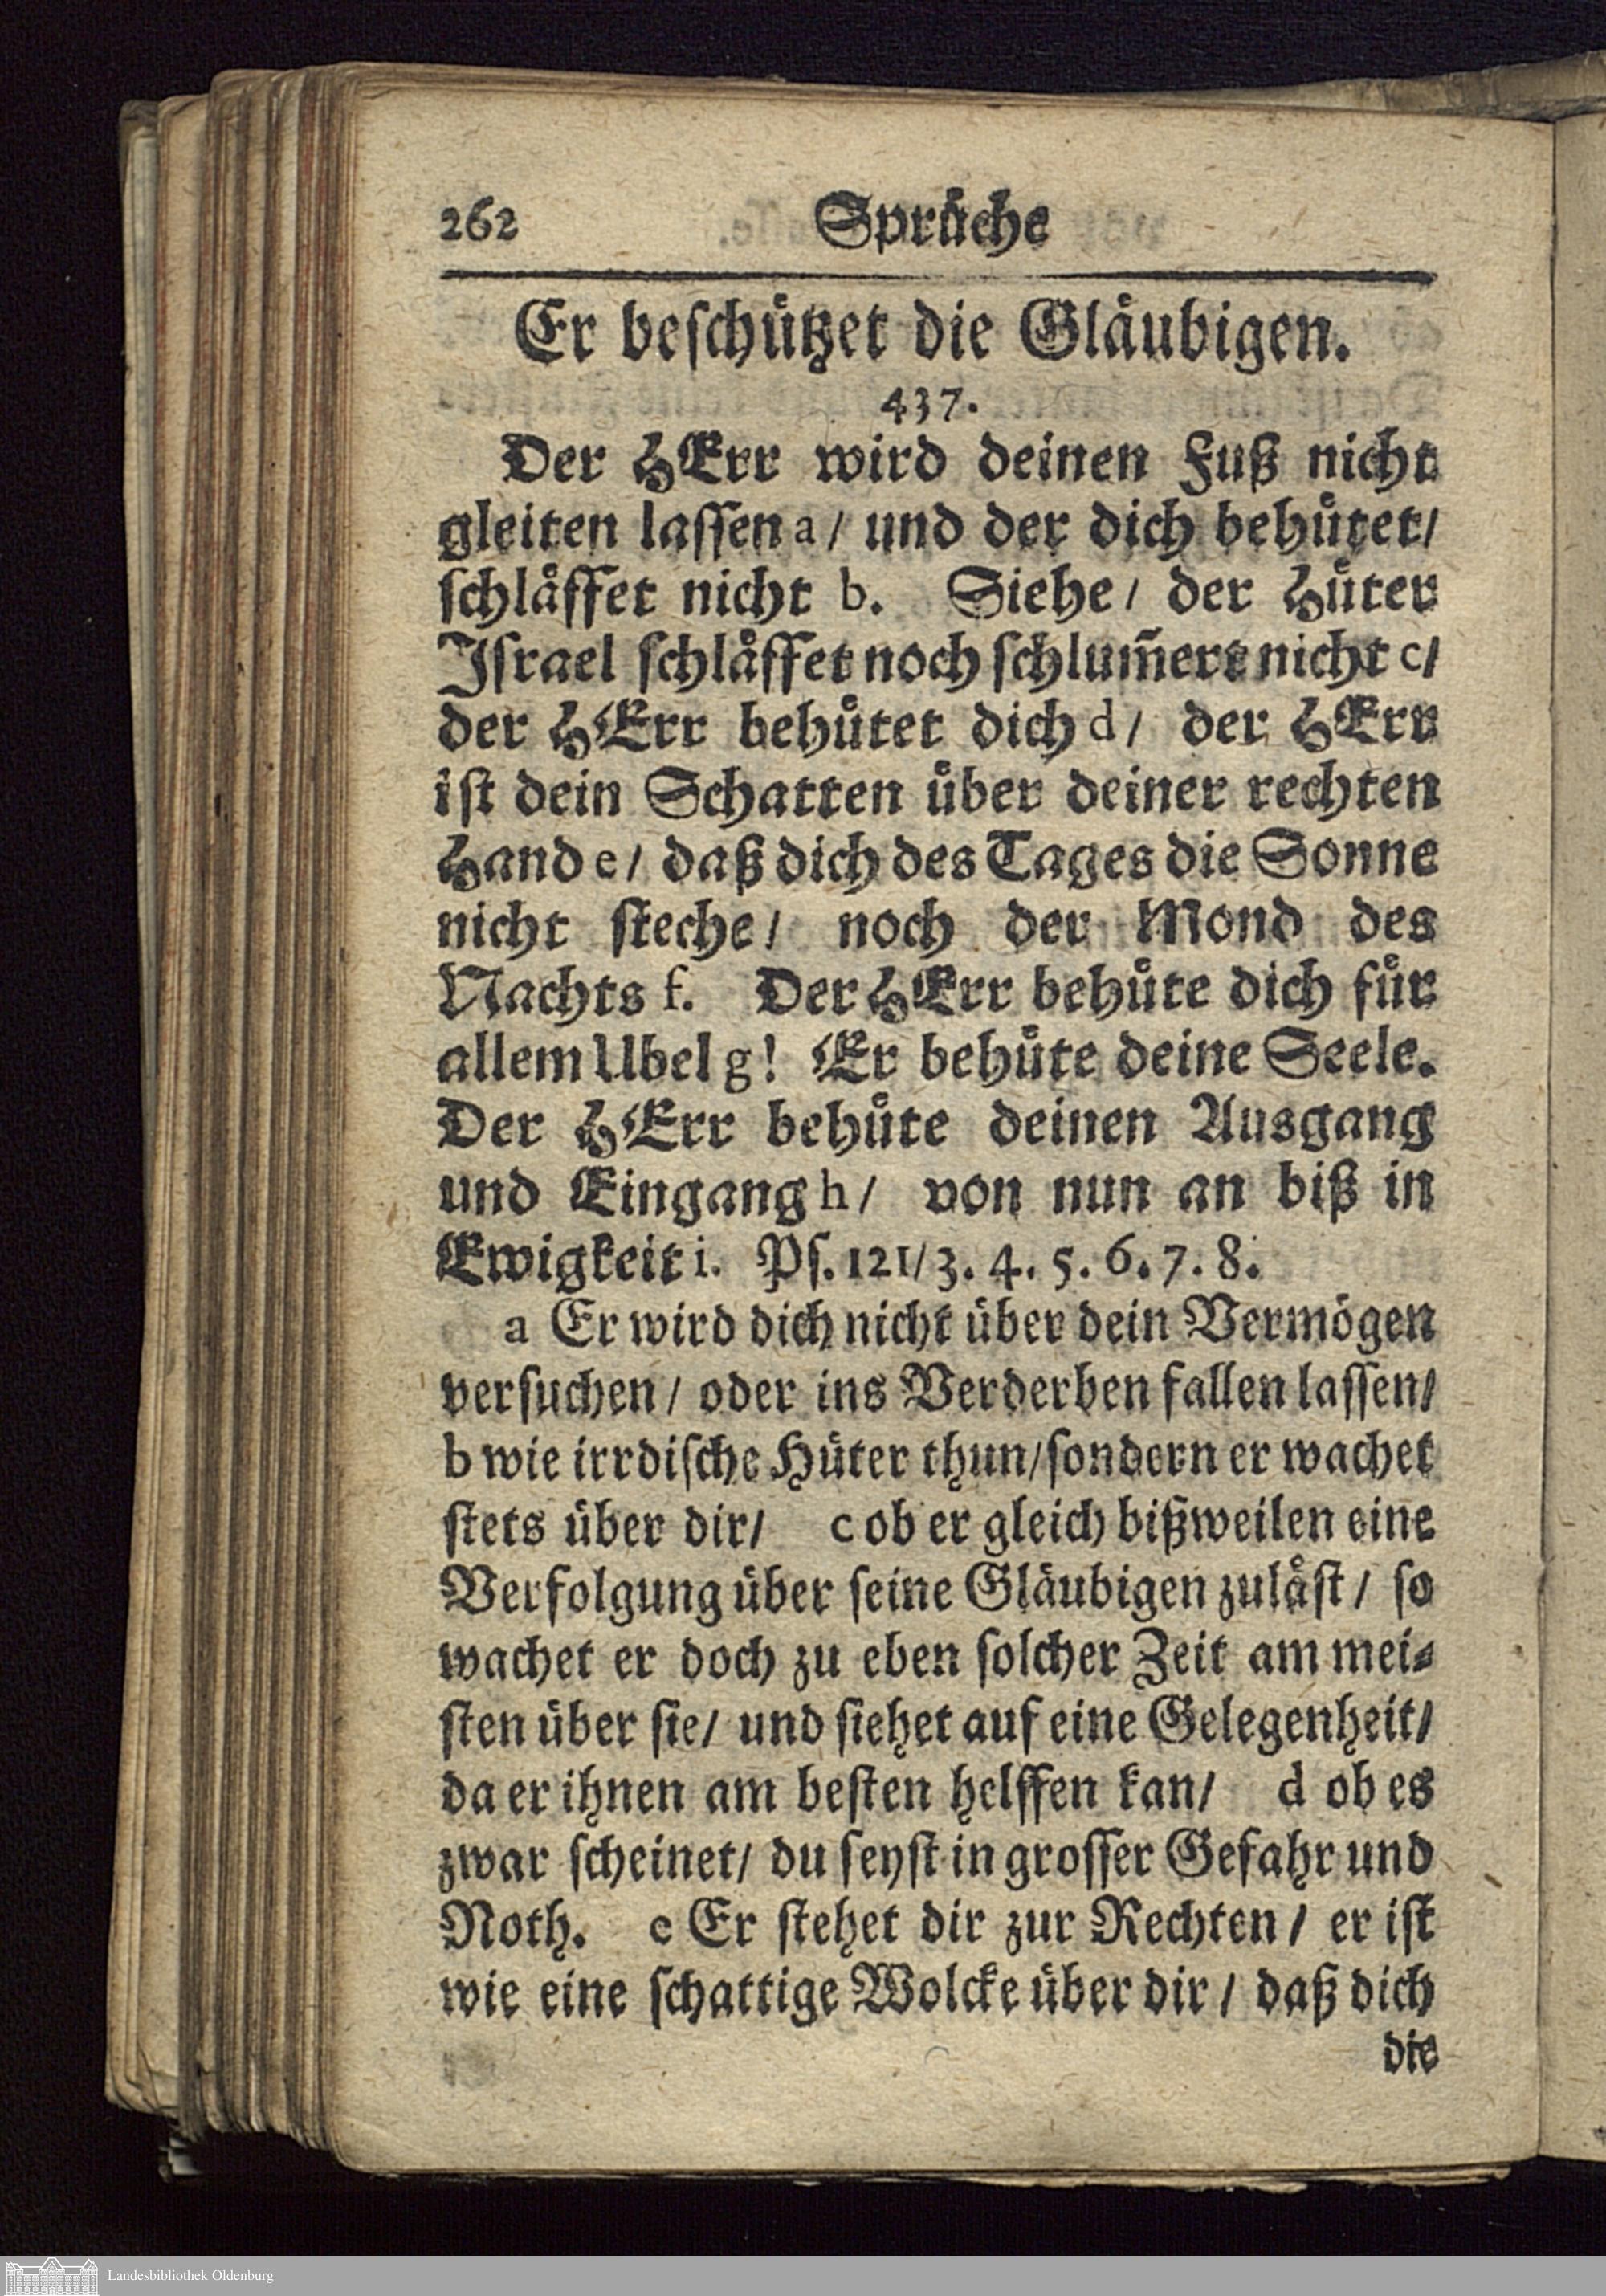 262 Sprüche
Er beschützet die Gläubigen.
437.
Der HErr wird deinen Fuß nicht
gleiten lassen a/ und der dich behütet/
schläffet nicht b. Siehe/ der Hüter
Israel schläffet noch schlum̃ert nicht c/
der HErr behütet dich d/ der HErr
ist dein Schatten über deiner rechten
Hand e/ daß dich des Tages die Sonne
nicht steche/ noch der Mond des
Nachts f. Der HErr behüte dich für
allem Ubel g! Er behüte deine Seele.
Der HErr behüte deinen Ausgang
und Eingang h/ von nun an biß in
Ewigkeit i. Ps. 121/3. 4. 5. 6. 7. 8.
a Er wird dich nicht über dein Vermögen
versuchen/ oder ins Verderben fallen lassen/
b wie irrdische Hüter thun/sondern er wachet
stets über dir/ c ob er gleich bißweilen eine
Verfolgung über seine Gläubigen zuläst/ so
wachet er doch zu eben solcher Zeit am mei-
sten über sie/ und siehet auf eine Gelegenheit/
da er ihnen am besten helffen kan/ d ob es
zwar scheinet/ du seyst in grosser Gefahr und
Noth. e Er stehet dir zur Rechten/ er ist
wie eine schattige Wolcke über dir/ daß dich
die
Landesbibliothek Oldenburg